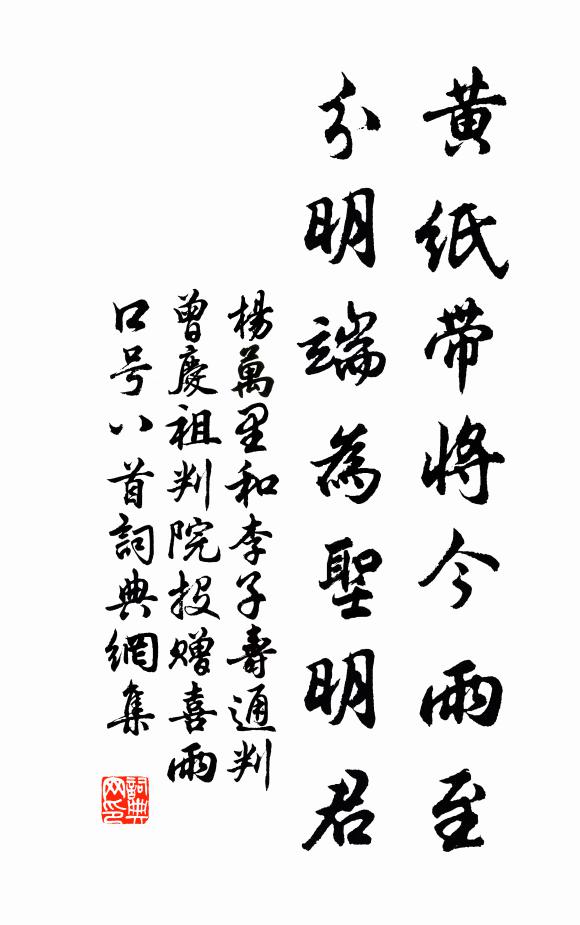 黄紙帶將今雨至
分明端為聖明君
楊萬里和李子壽通判
曾慶祖判院投贈喜雨
口号八首詞典網集
詞典網印